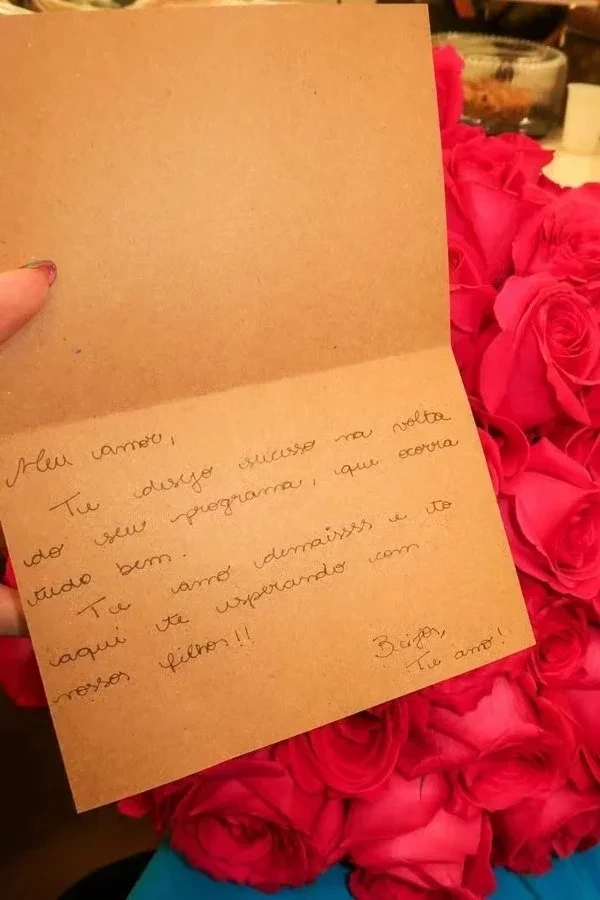 Meu amor,
Te desejo sucesso na volta
do seu programa, que ocorra
tudo bem.
Te amo demaisss e to
aqui te esperando com
nossos filhos!!
Beijos,
Te amo!